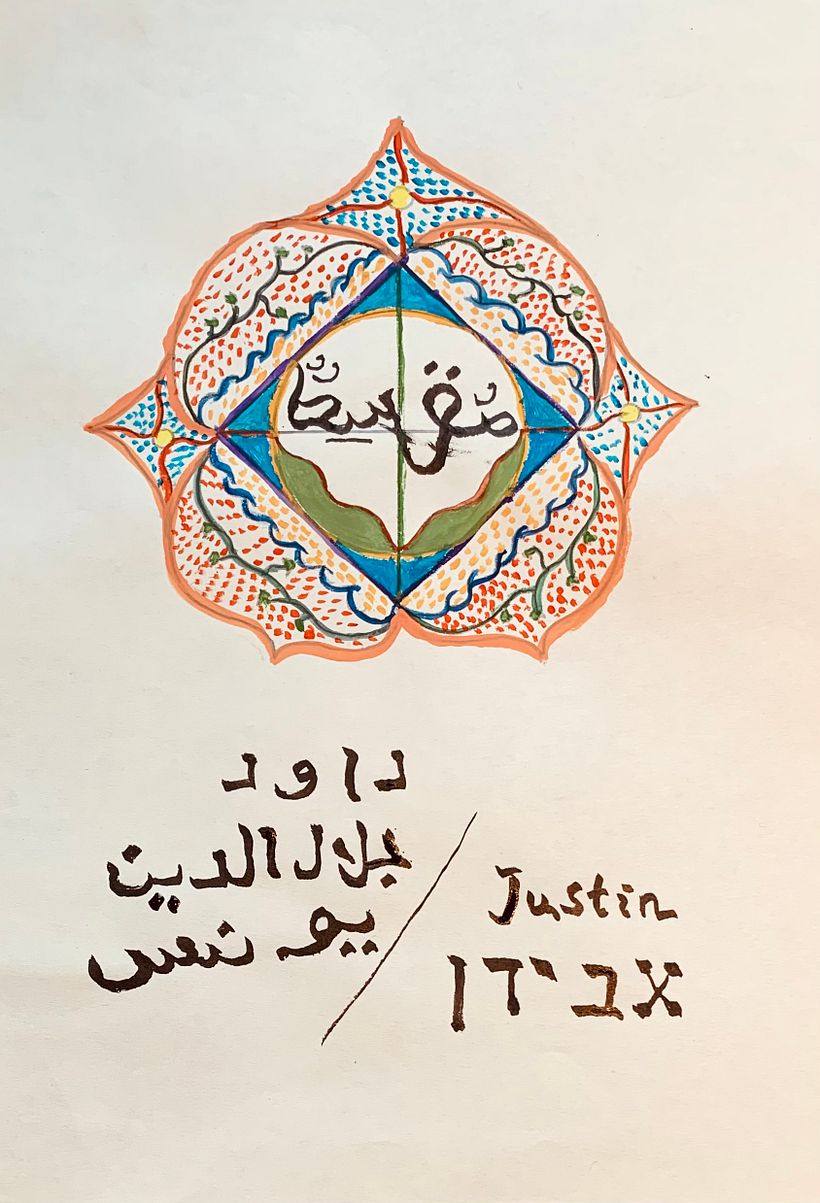 داود
جلال الدين
يونس
Justin
אבידן